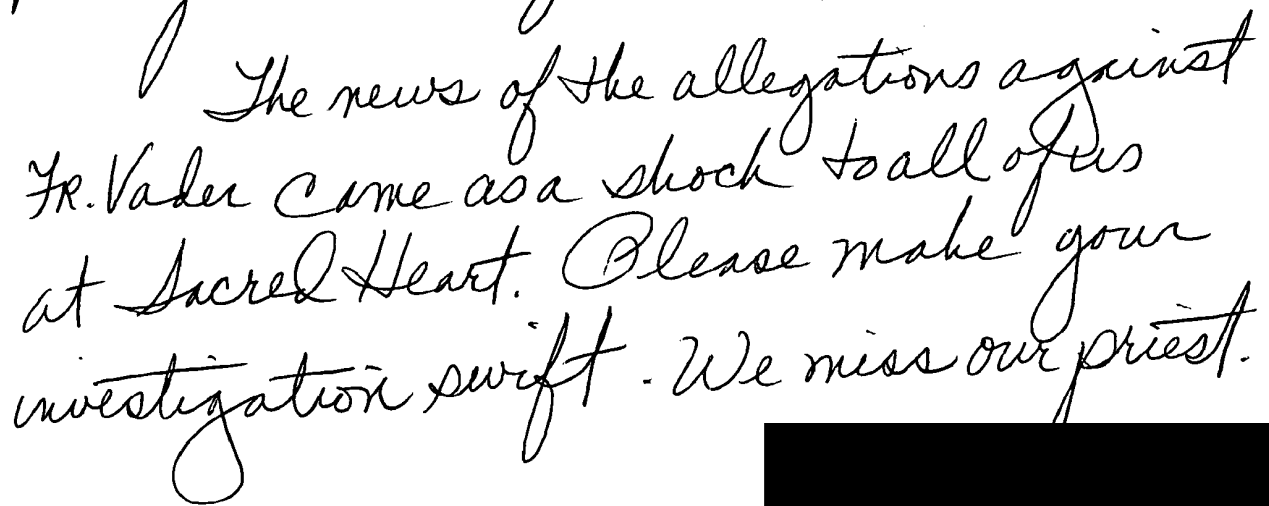 The news of the allegations against
Fr. Vader came as a shock to all of us
at Sacred Heart. Please make your
investigation swift. We miss our priest.